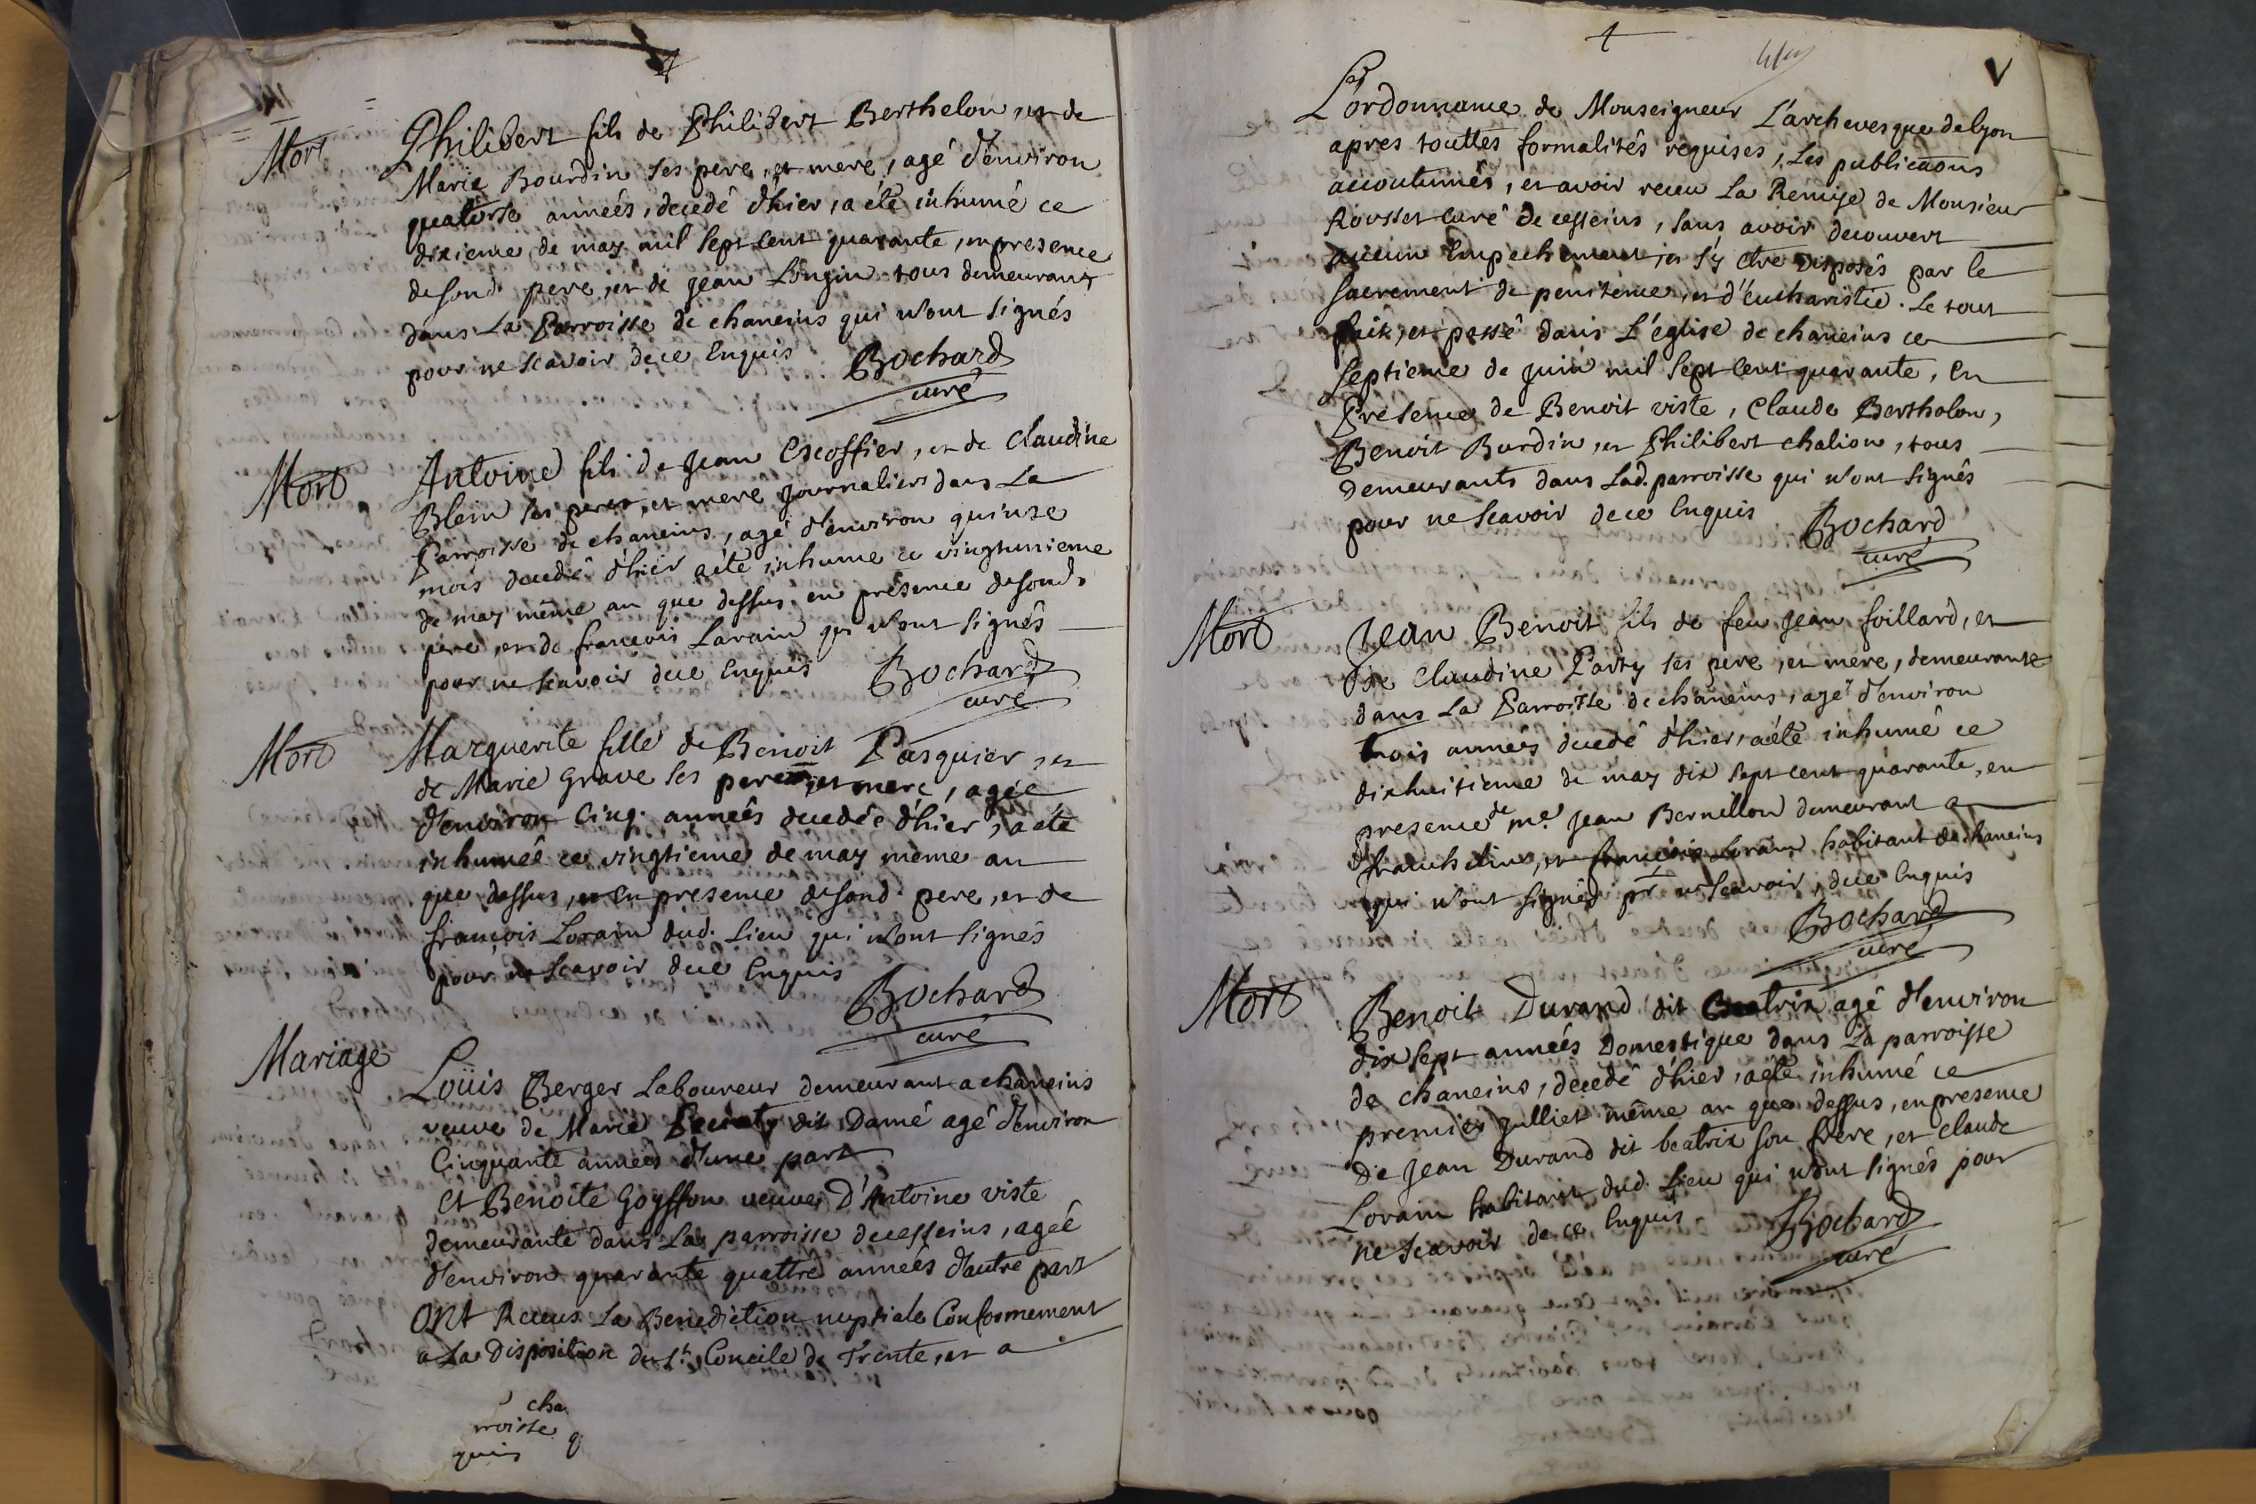 Mort
Philibert fils de Philibert Berthelon, et de
Marie Bourdin ses pere, et mere, agé d'environ
quatorse années, decedé d'hier, a été inhumé ce
dixieme de may mil sept cent quarante, en presence
de sond. pere, et de Jean Longin tous demeurants
dans La Parroisse de chaneins qui n'ont signés
pour ne scavoir de ce Enquis
Bochard
curé
Mort
Antoine fils de Jean Escoffier, et de Claudine
Blein ses peres, et mere Journaliers dans La
Parroisse de chaneins, agé d'environ quinse
mois decedé d'hier a été inhumé ce vingtunieme
de may même an que dessus, en présence de sond.
pere, et de francois Lorain qui n'ont signés
pour ne scavoir de ce Enquis
Bochard
curé
Mort
Marguerite fille de Benoit Pasquier, et
de Marie Grave ses pere, et mere, agée
d'environ Cinq. années decedée d'hier, a été
inhumée ce vingtieme de may même an
que dessus, en presence de sond. pere, et de
françois Lorain dud. Lieu qui n'ont signés
pour ne scavoir de ce Enquis
Bochard
curé
Mariage
Loüis Berger Laboureur demeurant a chaneins
veuve de Marie dit Damé agé d'environ
Cinquante années d'une part
Et Benoite Goyffon veuve D'Antoine viste
demeurante dans La parroisse de cesseins, agée
d'environ quarante quattre années d'autre part
ONt Receus La Benediction nuptiale Conformement
a La disposition du St. Concile de Trente, et a
cha
rroisse
quis q
L'ordonnance de Monseigneur L'archevesque de Lyon
apres touttes formalités requises, Les publicaons
accoutumés, et avoir receu La Remise de Monsieur
Rousset curé de cesseins, sans avoir decouvert
aucun Empechement, et s'y etre disposés par le
sacrement de penitence, et d'eucharistie. Le tout
fait, et passé dans L'église de chaneins ce
septieme de juin mil sept cent quarante, En
Présence de Benoit viste, Claude Bertholon,
Benoit Burdin, et Philibert chalion, tous
demeurants dans Lad. parroisse qui n'ont signés
pour ne scavoir de ce Enquis
Bochard
curé
Mort
Jean Benoit fils de feu Jean foillard, et
de Claudine Party ses pere, et mere, demeurante
dans La Parroisse de chaneins, agé d'environ
trois années decedé d'hier, a été inhumé ce
dixhuitieme de may dix sept cent quarante, en
presence de me. Jean Bernillon demeurant a
franchelins, et françois Lorain habitant de chaneins
qui n'ont signés pr. ne scavoir, de ce Enquis
Bochard
curé
Mort
Benoit Durand dit Beatrix agé d'environ
dix sept années Domestique dans La parroisse
de chaneins, decedé d'hier, a été inhumé ce
premier julliet même an que dessus, en presence
De Jean Durand dit beatrix son frere, et claude
Lorain habitant dud. Lieu qui n'ont signés pour
ne scavoir de ce Enquis
Bochard
curé